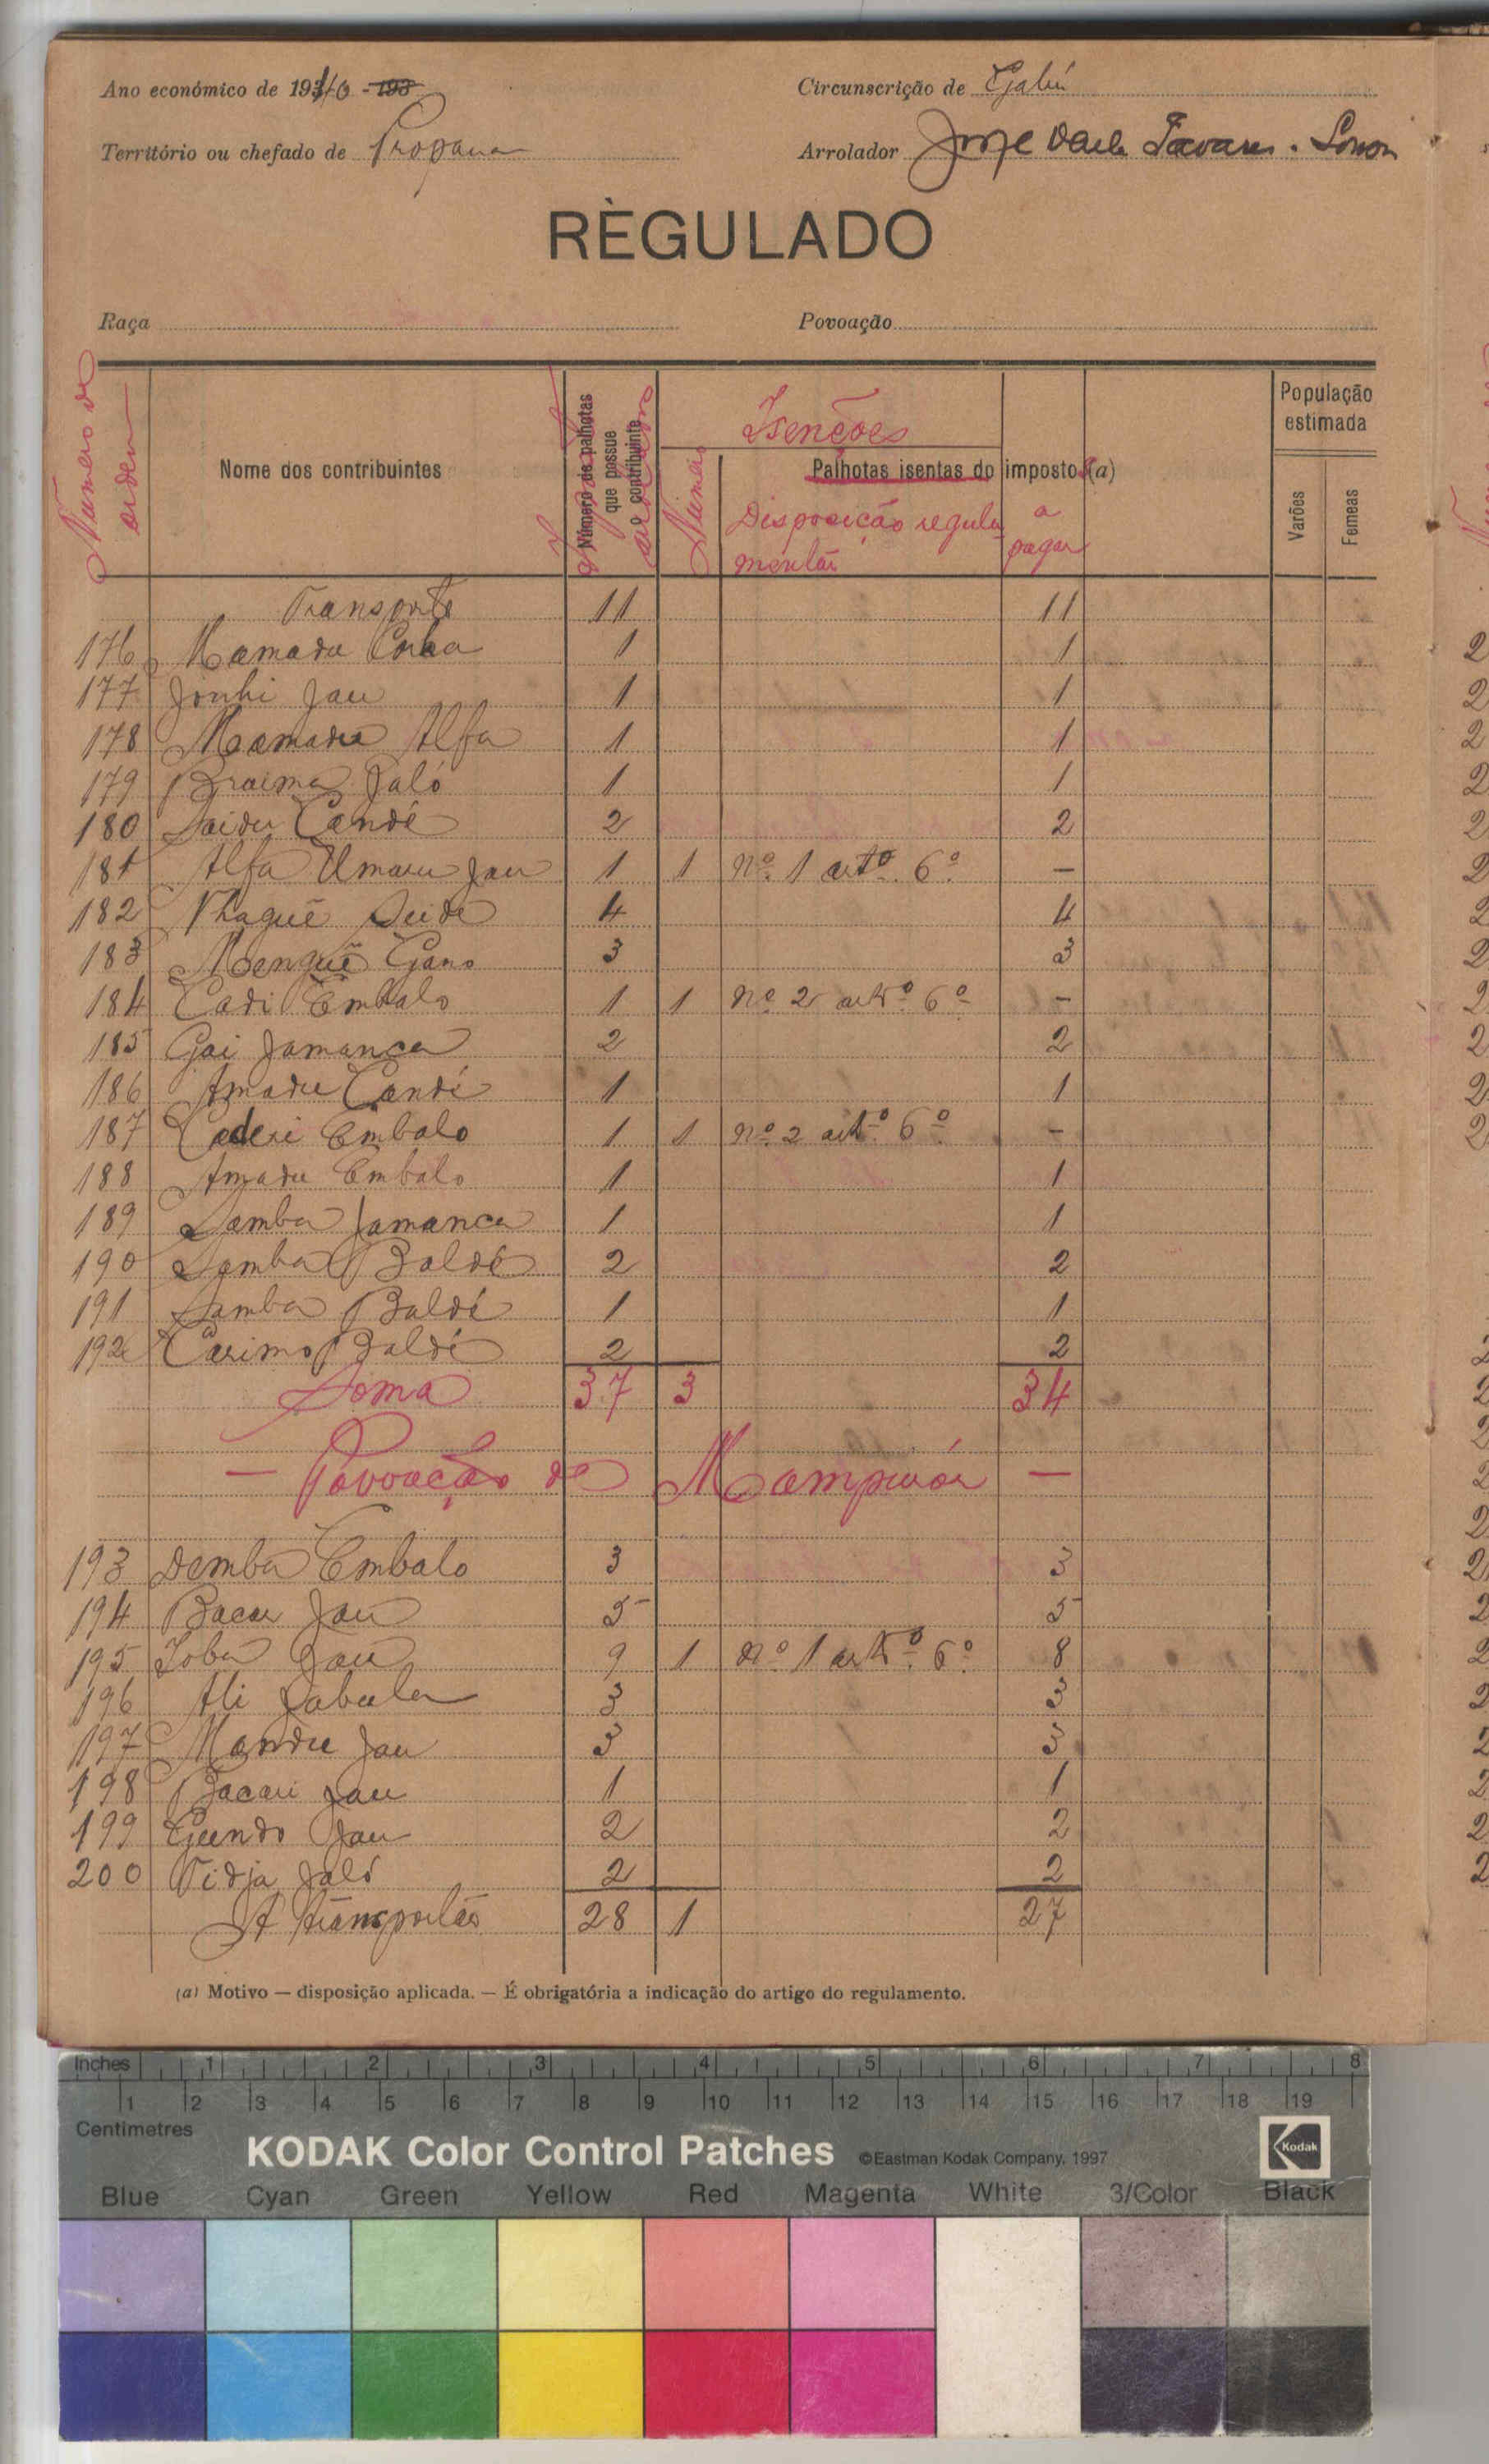 Ano económico de 19340 - 193
Circunscrição de Gabú
Território ou chefado de Propana
Arrolador Tavares
RÈGULADO
Raça
Povoação
Numero de ordem
Nome dos contribuintes
Número de palhotas que possue o contribuinte
Isenções
Palhotas isentas do imposto (a)
Numero
Disposição regulamentar
a pagar
População estimada
Varões
Femeas
Transporte 11 11
176 Mamadu 1 1
177 Jau 1 1
178 Mamadu Alfa 1 1
179 Braima Jaló 1 1
180 Saidu Candé 2 2
181 Alfa Umaru Jau 1 1 nº 1 artº 6º —
182 Seidé 4 4
183 Gano 3 3
184 Cadi Embalo 1 1 nº 2 artº 6º -
185 Gai Jamanca 2 2
186 Amadu Candé 1 1
187 Embalo 1 1 nº 2 artº 6º -
188 Amadu Embalo 1 1
189 Samba Jamanca 1 1
190 Samba Baldé 2 2
191 Samba Baldé 1 1
192 Carimo Baldé 2 2
Soma 37 3 34
— Povoação de —
193 Demba Embalo 3 3
194 Bacar Jau 5 5
195 Jau 9 1 nº 1 artº 6º 8
196 Ali 3 3
197 Jau 3 3
198 Bacari Jau 1 1
199 Jau 2 2
200 Tidja Jaló 2 2
A transportar 28 1 27
(a) Motivo — disposição aplicada. — É obrigatória a indicação do artigo do regulamento.
Inches 1 2 3 4 5 6 7 8
1 2 3 4 5 6 7 8 9 10 11 12 13 14 15 16 17 18 19
Centimetres
KODAK Color Control Patches ©Eastman Kodak Company, 1997 Kodak
Blue Cyan Green Yellow Red Magenta White 3/Color Black